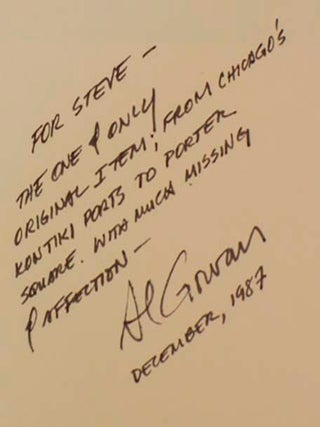 FOR STEVE —
THE ONE & ONLY
ORIGINAL ITEM; FROM CHICAGO'S
KONTIKI PORTS TO PORTER
SQUARE. WITH MUCH MISSING
& AFFECTION —
Al Gowan
DECEMBER, 1987